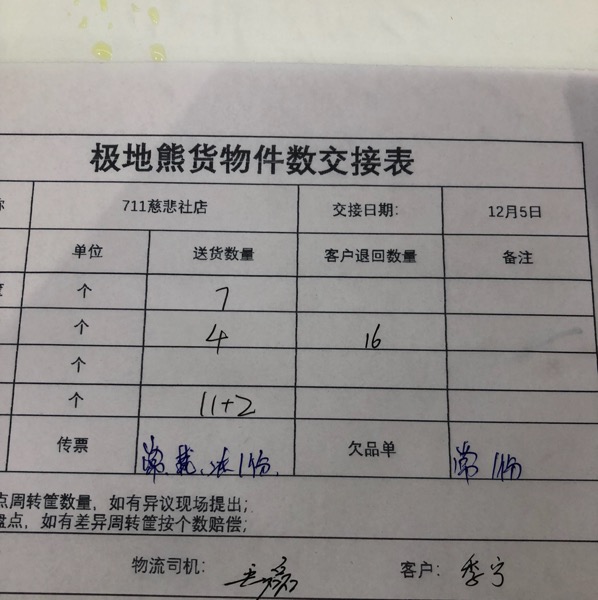 极地熊货物件数交接表
称 711慈悲社店 交接日期: 12月5日
单位 送货数量 客户退回数量 备注
个 7
个 4 16
个
个 11+2
传票 常 1份 欠品单 常 1份
点周转筐数量，如有异议现场提出；
盘点，如有差异周转筐按个数赔偿；
物流司机: 客户: 季宁